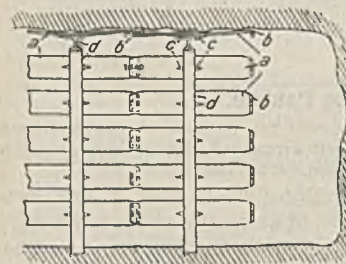 a d b c' c b
a
d b